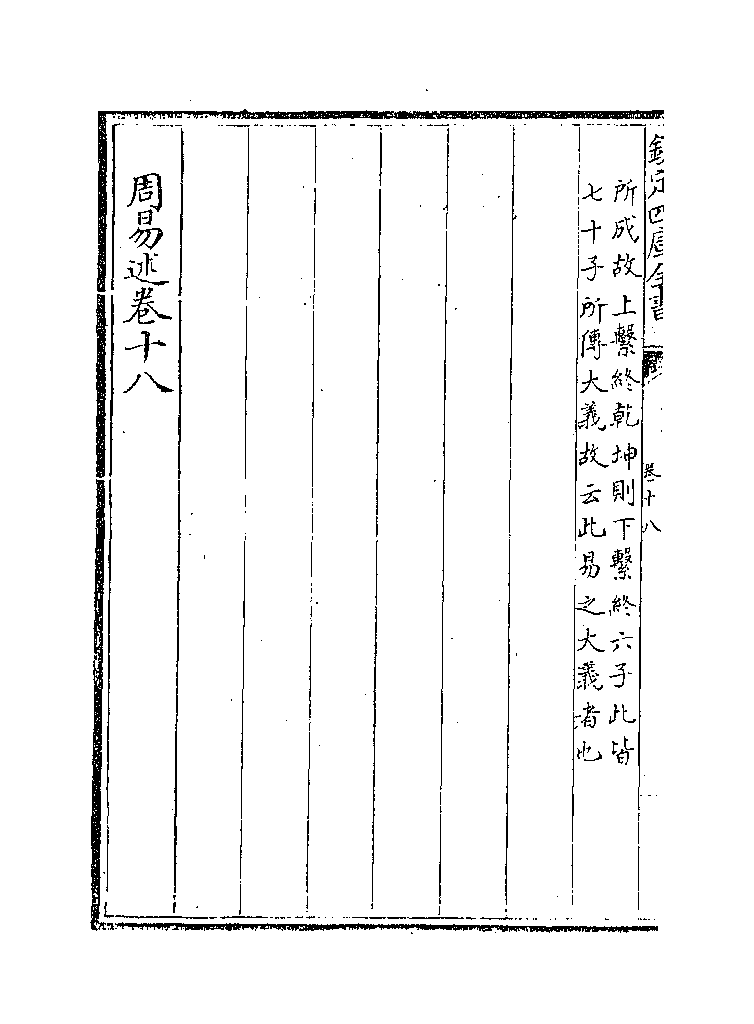 欽定四庫全書
卷十八
所成故上繫終乾坤則下繫終六子此皆
七十子所傳大義故云此易之大義者也
周易述卷十八